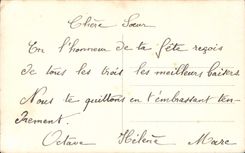 Chère Sœur
En l'honneur de ta fête reçois
de tous les trois les meilleurs baisers
Nous te quittons en t'embrassant ten-
drement.
Octave Hélène Marc